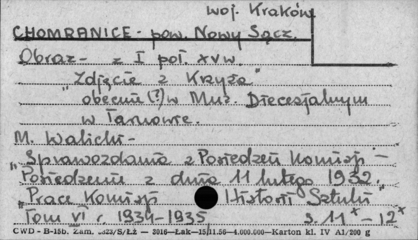 woj. Kraków
CHOMRANICE - pow. Nowy Sącz.
Obraz - z I poł. XV w.
"Zdjęcie z Krzyża"
obecnie (?) w Muz. Diecezjalnym
w Tarnowie.
M. Walicki -
"Sprawozdania z Posiedzeń Komisji -
Posiedzenie z dnia 11 lutego 1932.
"Prace Komisji Historii Sztuki"
Tom VI, 1934-1935 s. 11* - 12*
CWD - B-15b. Zam. 5323/S/Łż — 3016—Łak—15.11.56—4.000.000—Karton kl. IV A1/200 g